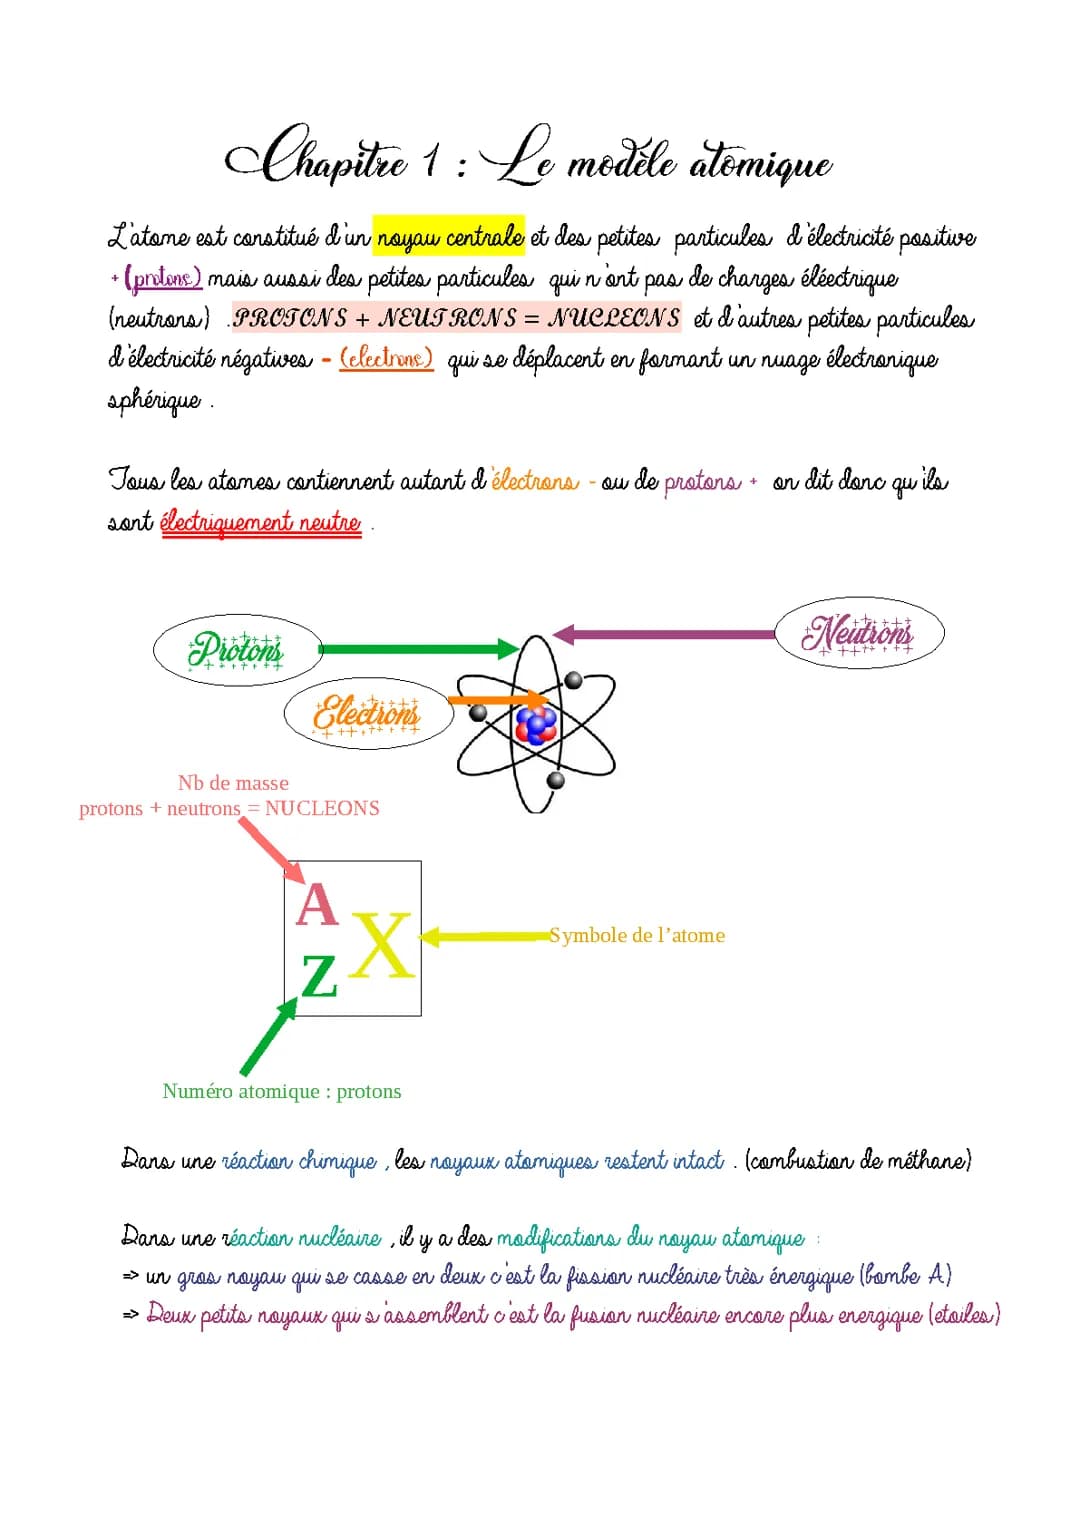 Chapitre 1 : Le modèle atomique
L'atome est constitué d'un noyau centrale et des petites particules d'électricité positive
+ (protons) mais aussi des petites particules qui n'ont pas de charges éléectrique
(neutrons) .PROTONS + NEUTRONS = NUCLEONS et d'autres petites particules
d'électricité négatives - (electrons) qui se déplacent en formant un nuage électronique
sphérique .
Tous les atomes contiennent autant d'électrons - ou de protons + on dit donc qu'ils
sont électriquement neutre .
Protons
Neutrons
Electrons
Nb de masse
protons + neutrons = NUCLEONS
A
X
Z
Symbole de l'atome
Numéro atomique : protons
Dans une réaction chimique , les noyaux atomiques restent intact . (combustion de méthane)
Dans une réaction nucléaire , il y a des modifications du noyau atomique :
=> un gros noyau qui se casse en deux c'est la fission nucléaire très énergique (bombe A)
=> Deux petits noyaux qui s'assemblent c'est la fusion nucléaire encore plus energique (etoiles)